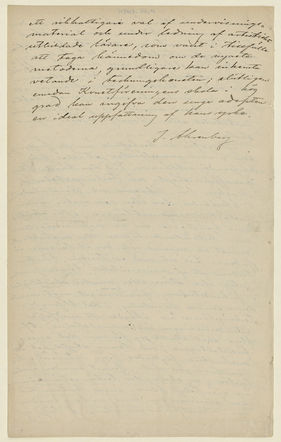 ett rikhaltigare val af undervisnings-
material och under ledning af artistiskt
utbildade lärare, som varit i tillfälle
att taga kännedom om de nyaste
metoderna, grundligare kan inhemta
vetande i teckningskonsten, slutligen
emedan Konstföreningens skola i hög
grad kan angifva den unge adepten
en ideal uppfattning af hans yrke.
J. Ahrenberg